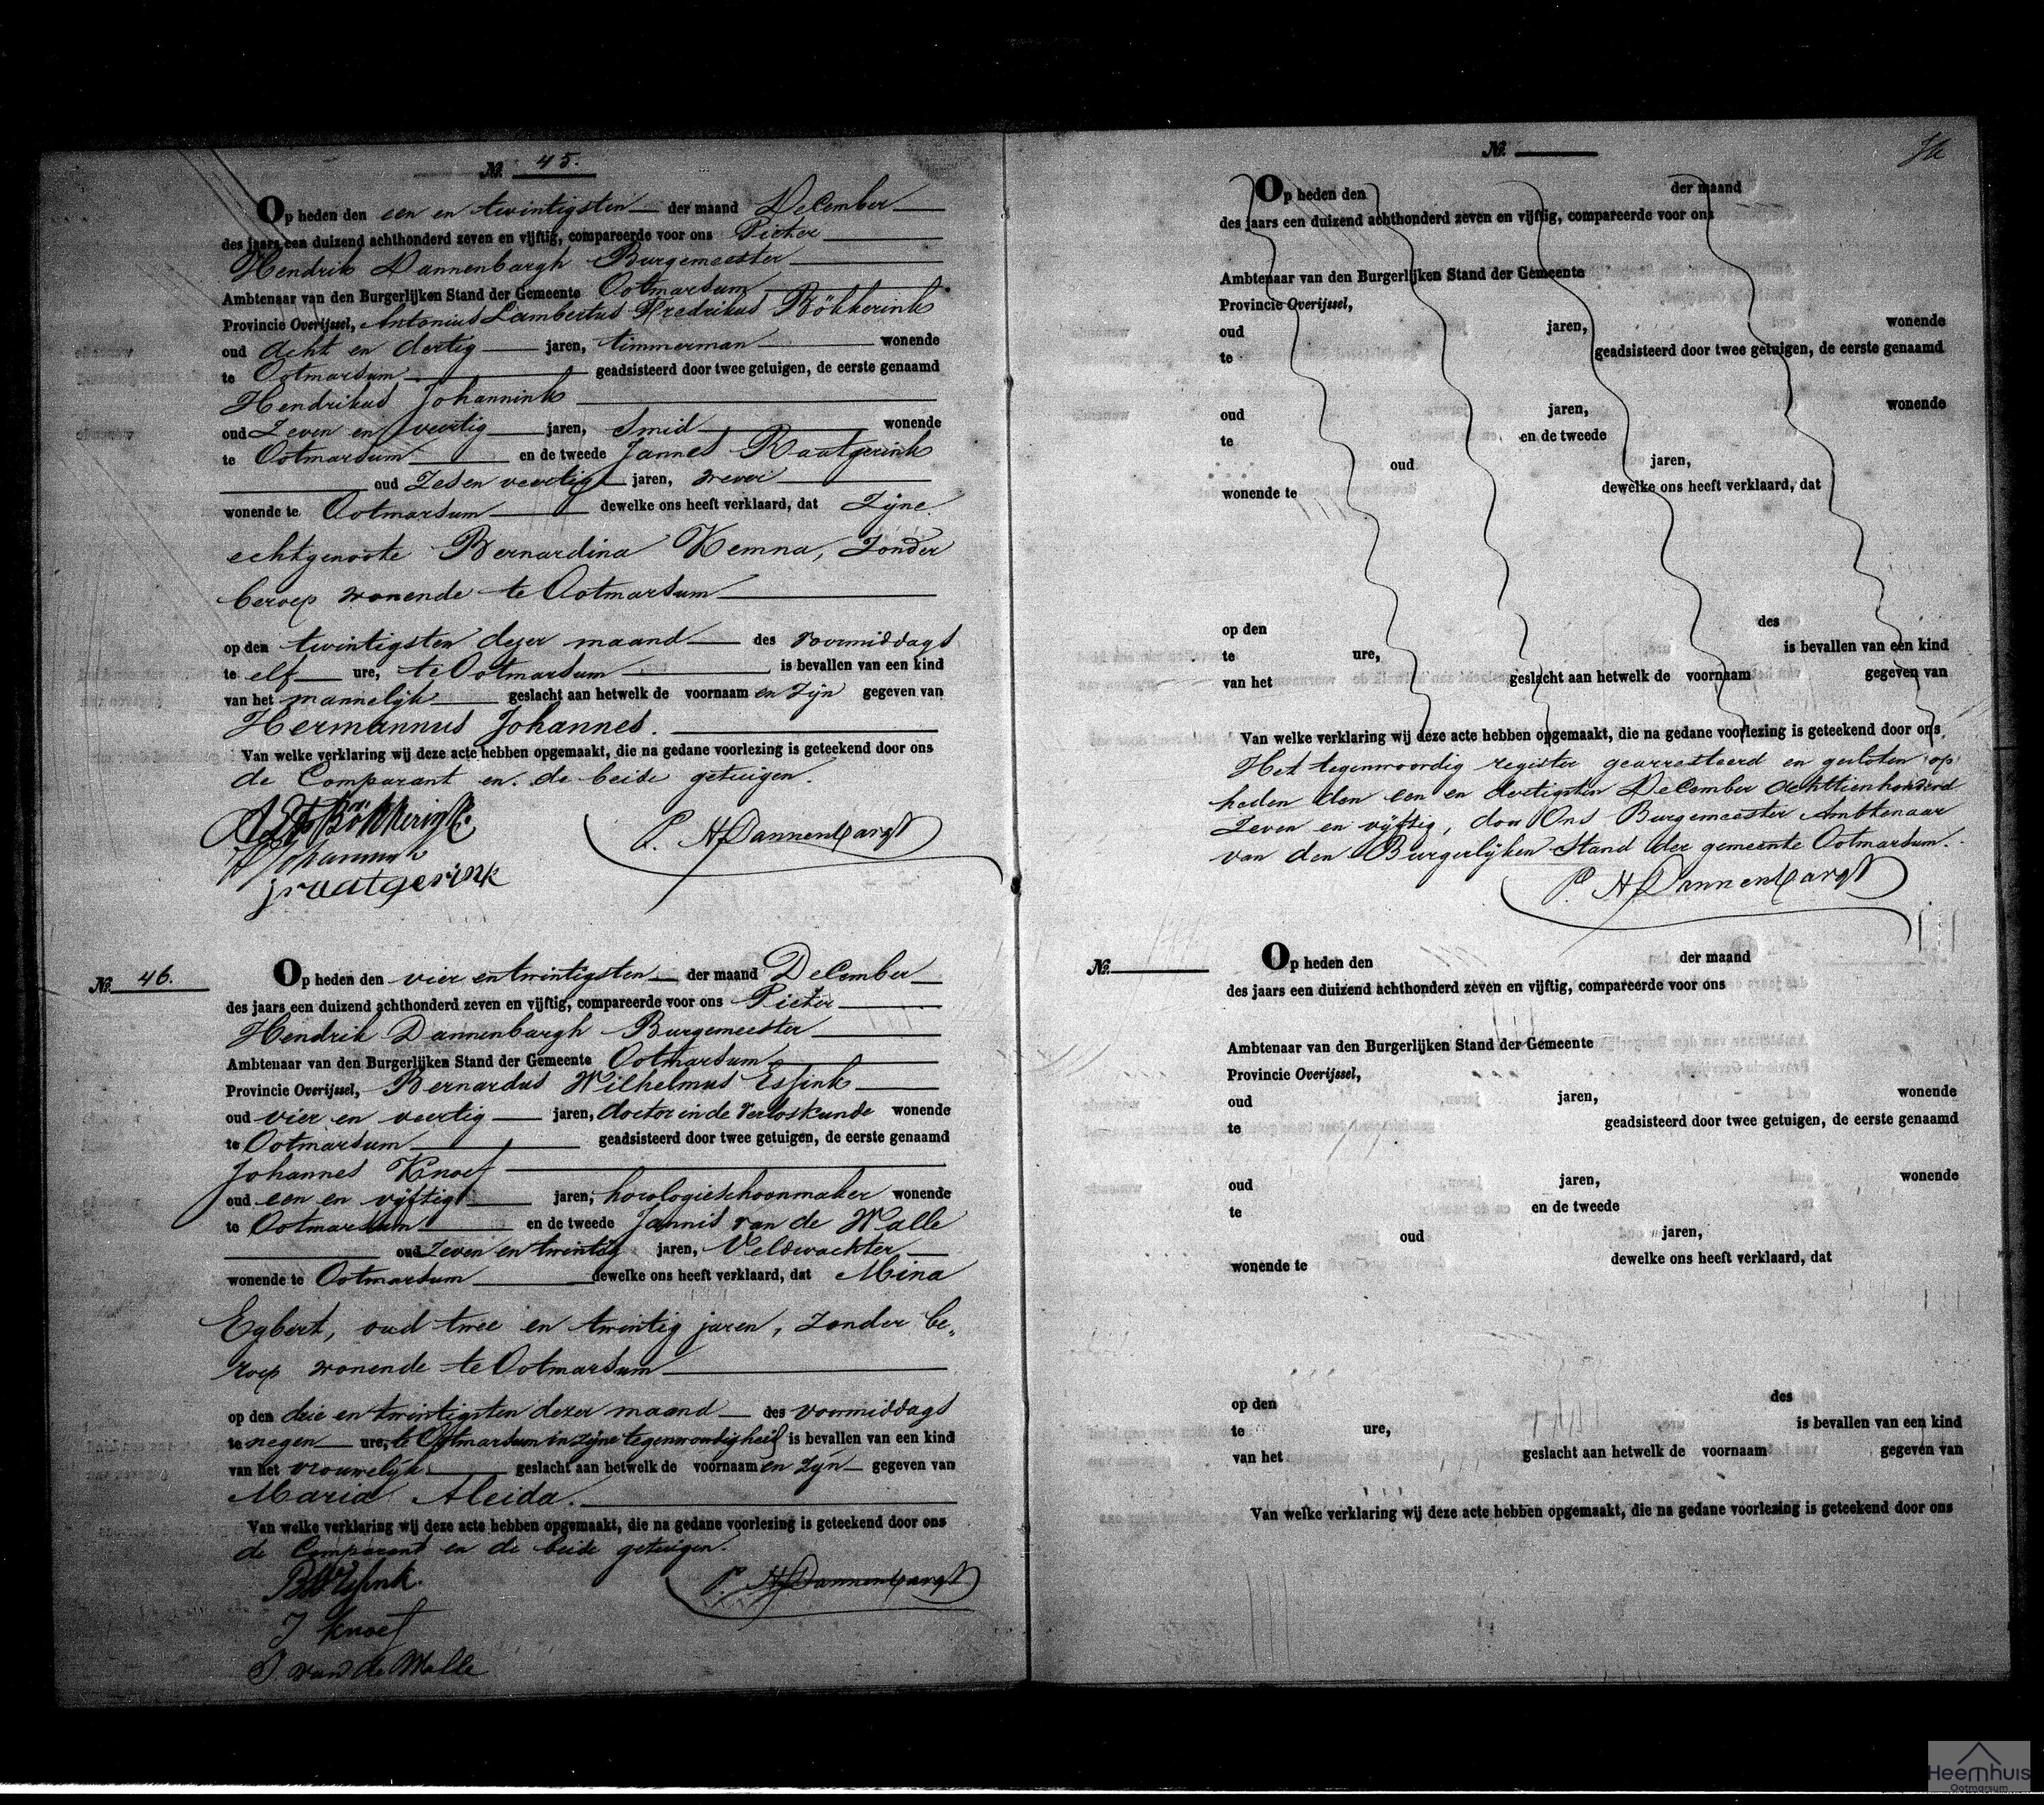 No. 45.
Op heden den een en twintigsten der maand December
des jaars een duizend achthonderd zeven en vijftig, compareerde voor ons Pieter
Hendrik Dannenbargh Burgemeester
Ambtenaar van den Burgerlijken Stand der Gemeente Ootmarsum
Provincie Overijssel, Antonius Lambertus Fredrikus Bökkerink
oud acht en dertig jaren, timmerman wonende
te Ootmarsum geadsisteerd door twee getuigen, de eerste genaamd
Hendrikus Johannink
oud zeven en veertig jaren, smid wonende
te Ootmarsum en de tweede Jannes Raatgerink
oud zes en veertig jaren, wever
wonende te Ootmarsum dewelke ons heeft verklaard, dat zijne
echtgenoote Bernardina Kemna, zonder
beroep wonende te Ootmarsum
op den twintigsten dezer maand des voormiddags
te elf ure, te Ootmarsum is bevallen van een kind
van het mannelijk geslacht aan hetwelk de voornaam en zijn gegeven van
Hermannus Johannes.
Van welke verklaring wij deze acte hebben opgemaakt, die na gedane voorlezing is geteekend door ons
de Comparant en de beide getuigen.
Bökkerink
P. H Dannenbargh
Johannink
J raatgerink
No. 46.
Op heden den vier en twintigsten der maand December
des jaars een duizend achthonderd zeven en vijftig, compareerde voor ons Pieter
Hendrik Dannenbargh Burgemeester
Ambtenaar van den Burgerlijken Stand der Gemeente Ootmarsum
Provincie Overijssel, Bernardus Wilhelmus Essink
oud vier en veertig jaren, doctor in de verloskunde wonende
te Ootmarsum geadsisteerd door twee getuigen, de eerste genaamd
Johannes Knoef
oud een en vijftig jaren, horologieschoonmaker wonende
te Ootmarsum en de tweede Jannis van de Walle
oud zeven en twintig jaren, Veldwachter
wonende te Ootmarsum dewelke ons heeft verklaard, dat Mina
Egbert, oud twee en twintig jaren, zonder be„
roep wonende te Ootmarsum
op den drie en twintigsten dezer maand des voormiddags
te negen ure, te Ootmarsum in zijne tegenwoordigheid is bevallen van een kind
van het vrouwelijk geslacht aan hetwelk de voornaam en zijn gegeven van
Maria Aleida.
Van welke verklaring wij deze acte hebben opgemaakt, die na gedane voorlezing is geteekend door ons
de Comparant en de beide getuigen.
BW Essink.
P. H Dannenbargh
J Knoef
J. van de Walle
No.
Op heden den der maand
des jaars een duizend achthonderd zeven en vijftig, compareerde voor ons
Ambtenaar van den Burgerlijken Stand der Gemeente
Provincie Overijssel,
oud jaren, wonende
te geadsisteerd door twee getuigen, de eerste genaamd
oud jaren, wonende
te en de tweede
oud jaren,
wonende te dewelke ons heeft verklaard, dat
op den des
te ure, is bevallen van een kind
van het geslacht aan hetwelk de voornaam gegeven van
Van welke verklaring wij deze acte hebben opgemaakt, die na gedane voorlezing is geteekend door ons
Het tegenwoordig register gearresteerd en gesloten op
heden den een en dertigsten December achttienhonderd
zeven en vijftig, door Ons Burgemeester Ambtenaar
van den Burgerlijken Stand der gemeente Ootmarsum.
P. H Dannenbargh
No.
Op heden den der maand
des jaars een duizend achthonderd zeven en vijftig, compareerde voor ons
Ambtenaar van den Burgerlijken Stand der Gemeente
Provincie Overijssel,
oud jaren, wonende
te geadsisteerd door twee getuigen, de eerste genaamd
oud jaren, wonende
te en de tweede
oud jaren,
wonende te dewelke ons heeft verklaard, dat
op den des
te ure, is bevallen van een kind
van het geslacht aan hetwelk de voornaam gegeven van
Van welke verklaring wij deze acte hebben opgemaakt, die na gedane voorlezing is geteekend door ons
Heemhuis
Ootmarsum